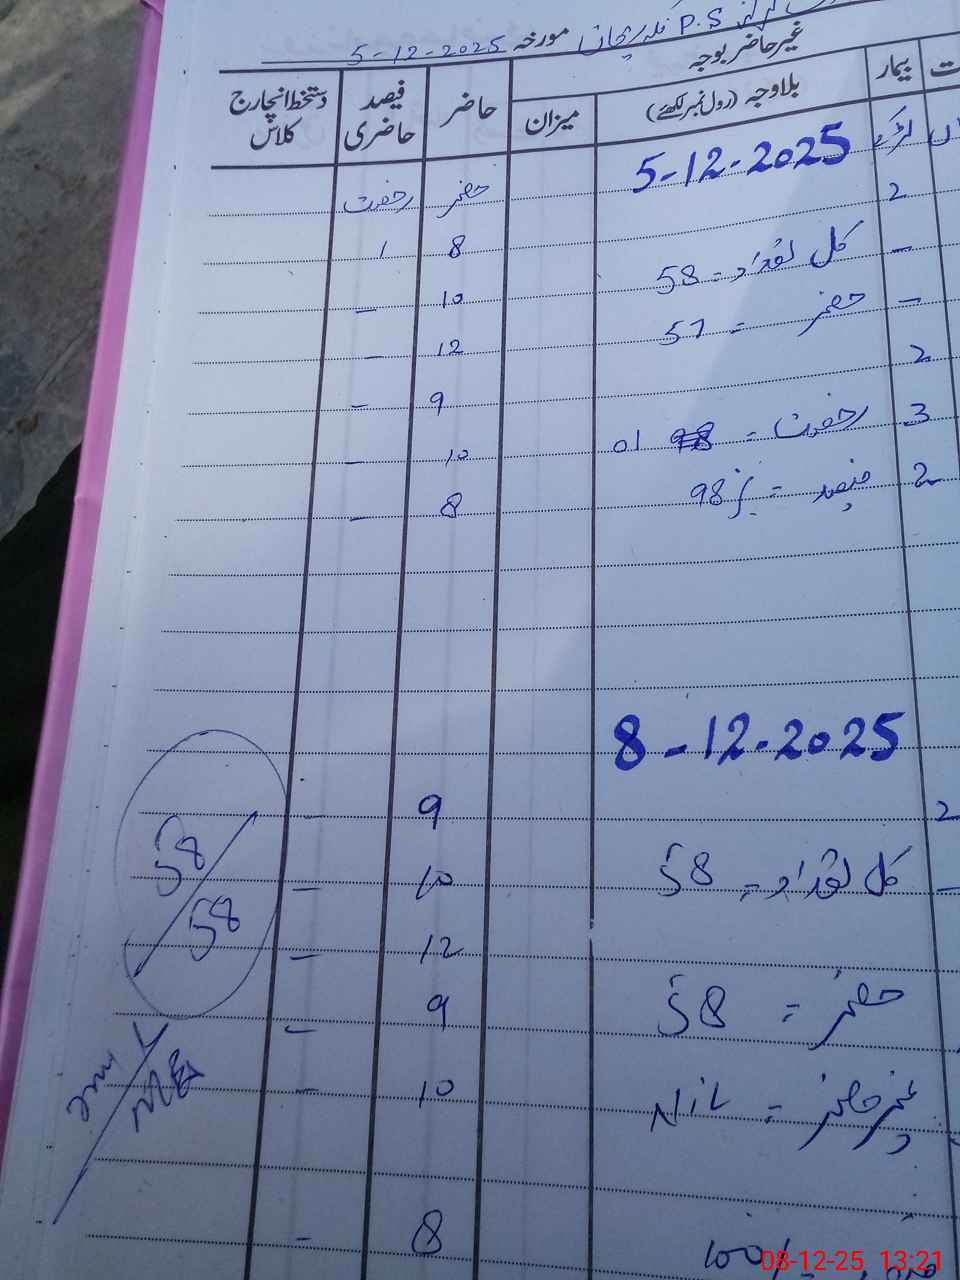 P.S مورخہ 5-12-2025
غیر حاضر بوجہ
بیمار بلاوجہ (رول نمبر لکھئے) میزان حاضر فیصد حاضری دستخط انچارج کلاس
5-12-2025 حاضر رخصت
2
8 1
کل تعداد = 58 –
10 –
حاضر = 57 –
12 –
2
9 –
رخصت = 01 3
10 –
فیصد = 98٪ 2
8 –
8-12-2025
2 9 –
کل تعداد = 58 –
10 –
58/58
12 –
حاضر = 58
9 –
غیر حاضر = Nil
10 –
8 –
100٪
08-12-25 13:21